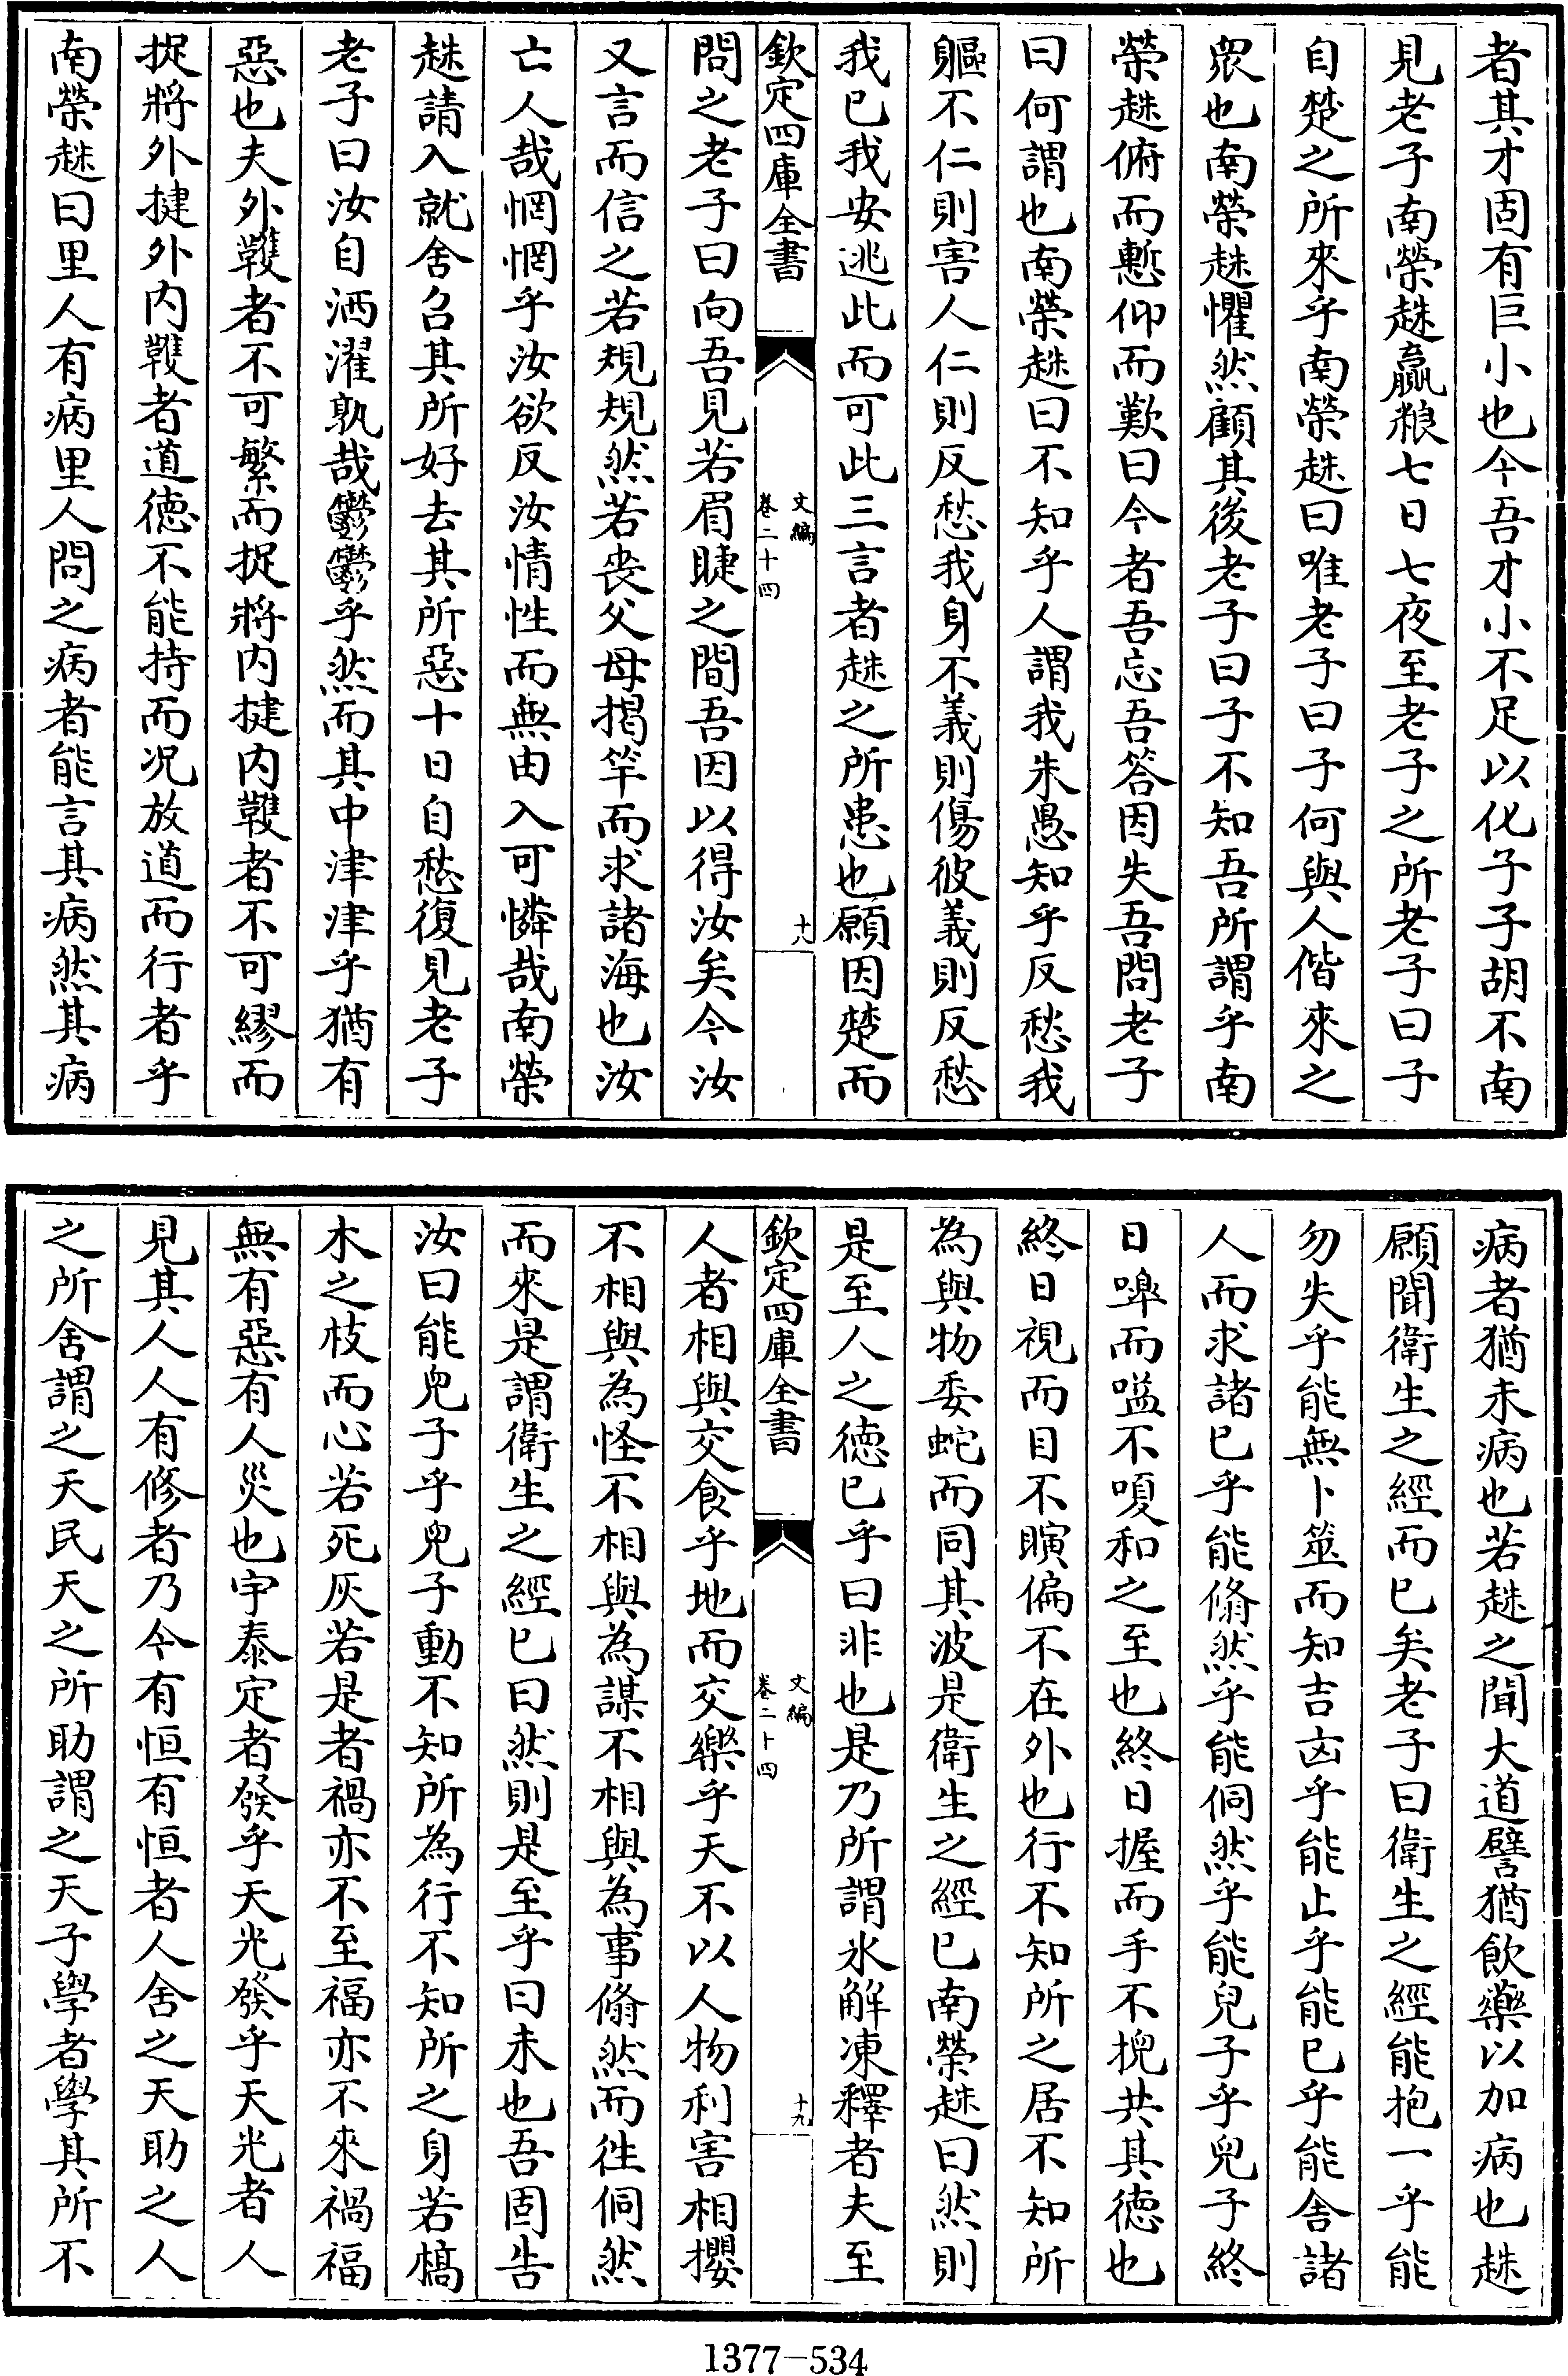 者其才固有巨小也今吾才小不足以化子子胡不南
見老子南榮趎贏粮七日七夜至老子之所老子曰子
自楚之所來乎南榮趎曰唯老子曰子何與人偕來之
眾也南榮趎懼然顧其後老子曰子不知吾所謂乎南
榮趎俯而慙仰而歎曰今者吾忘吾答因失吾問老子
曰何謂也南榮趎曰不知乎人謂我朱愚知乎反愁我
軀不仁則害人仁則反愁我身不義則傷彼義則反愁
我已我安逃此而可此三言者趎之所患也願因楚而
欽定四庫全書
文編
卷二十四
十八
問之老子曰向吾見若眉睫之間吾因以得汝矣今汝
又言而信之若規規然若喪父母揭竿而求諸海也汝
亡人哉惘惘乎汝欲反汝情性而無由入可憐哉南榮
趎請入就舍召其所好去其所惡十日自愁復見老子
老子曰汝自洒濯孰哉鬱鬱乎然而其中津津乎猶有
惡也夫外韄者不可繁而捉將內揵內韄者不可繆而
捉將外揵外內韄者道德不能持而況放道而行者乎
南榮趎曰里人有病里人問之病者能言其病然其病
病者猶未病也若趎之聞大道譬猶飲藥以加病也趎
願聞衛生之經而已矣老子曰衛生之經能抱一乎能
勿失乎能無卜筮而知吉凶乎能止乎能已乎能舍諸
人而求諸已乎能翛然乎能侗然乎能兒子乎兒子終
日嘷而嗌不嗄和之至也終日握而手不掜共其德也
終日視而目不瞚偏不在外也行不知所之居不知所
為與物委蛇而同其波是衛生之經已南榮趎曰然則
是至人之德已乎曰非也是乃所謂氷解凍釋者夫至
欽定四庫全書
文編
卷二十四
十九
人者相與交食乎地而交樂乎天不以人物利害相攖
不相與為怪不相與為謀不相與為事翛然而往侗然
而來是謂衛生之經已曰然則是至乎曰未也吾固告
汝曰能兒子乎兒子動不知所為行不知所之身若槁
木之枝而心若死灰若是者禍亦不至福亦不來禍福
無有惡有人災也宇泰定者發乎天光發乎天光者人
見其人人有修者乃今有恒有恒者人舍之天助之人
之所舍謂之天民天之所助謂之天子學者學其所不
1377-534